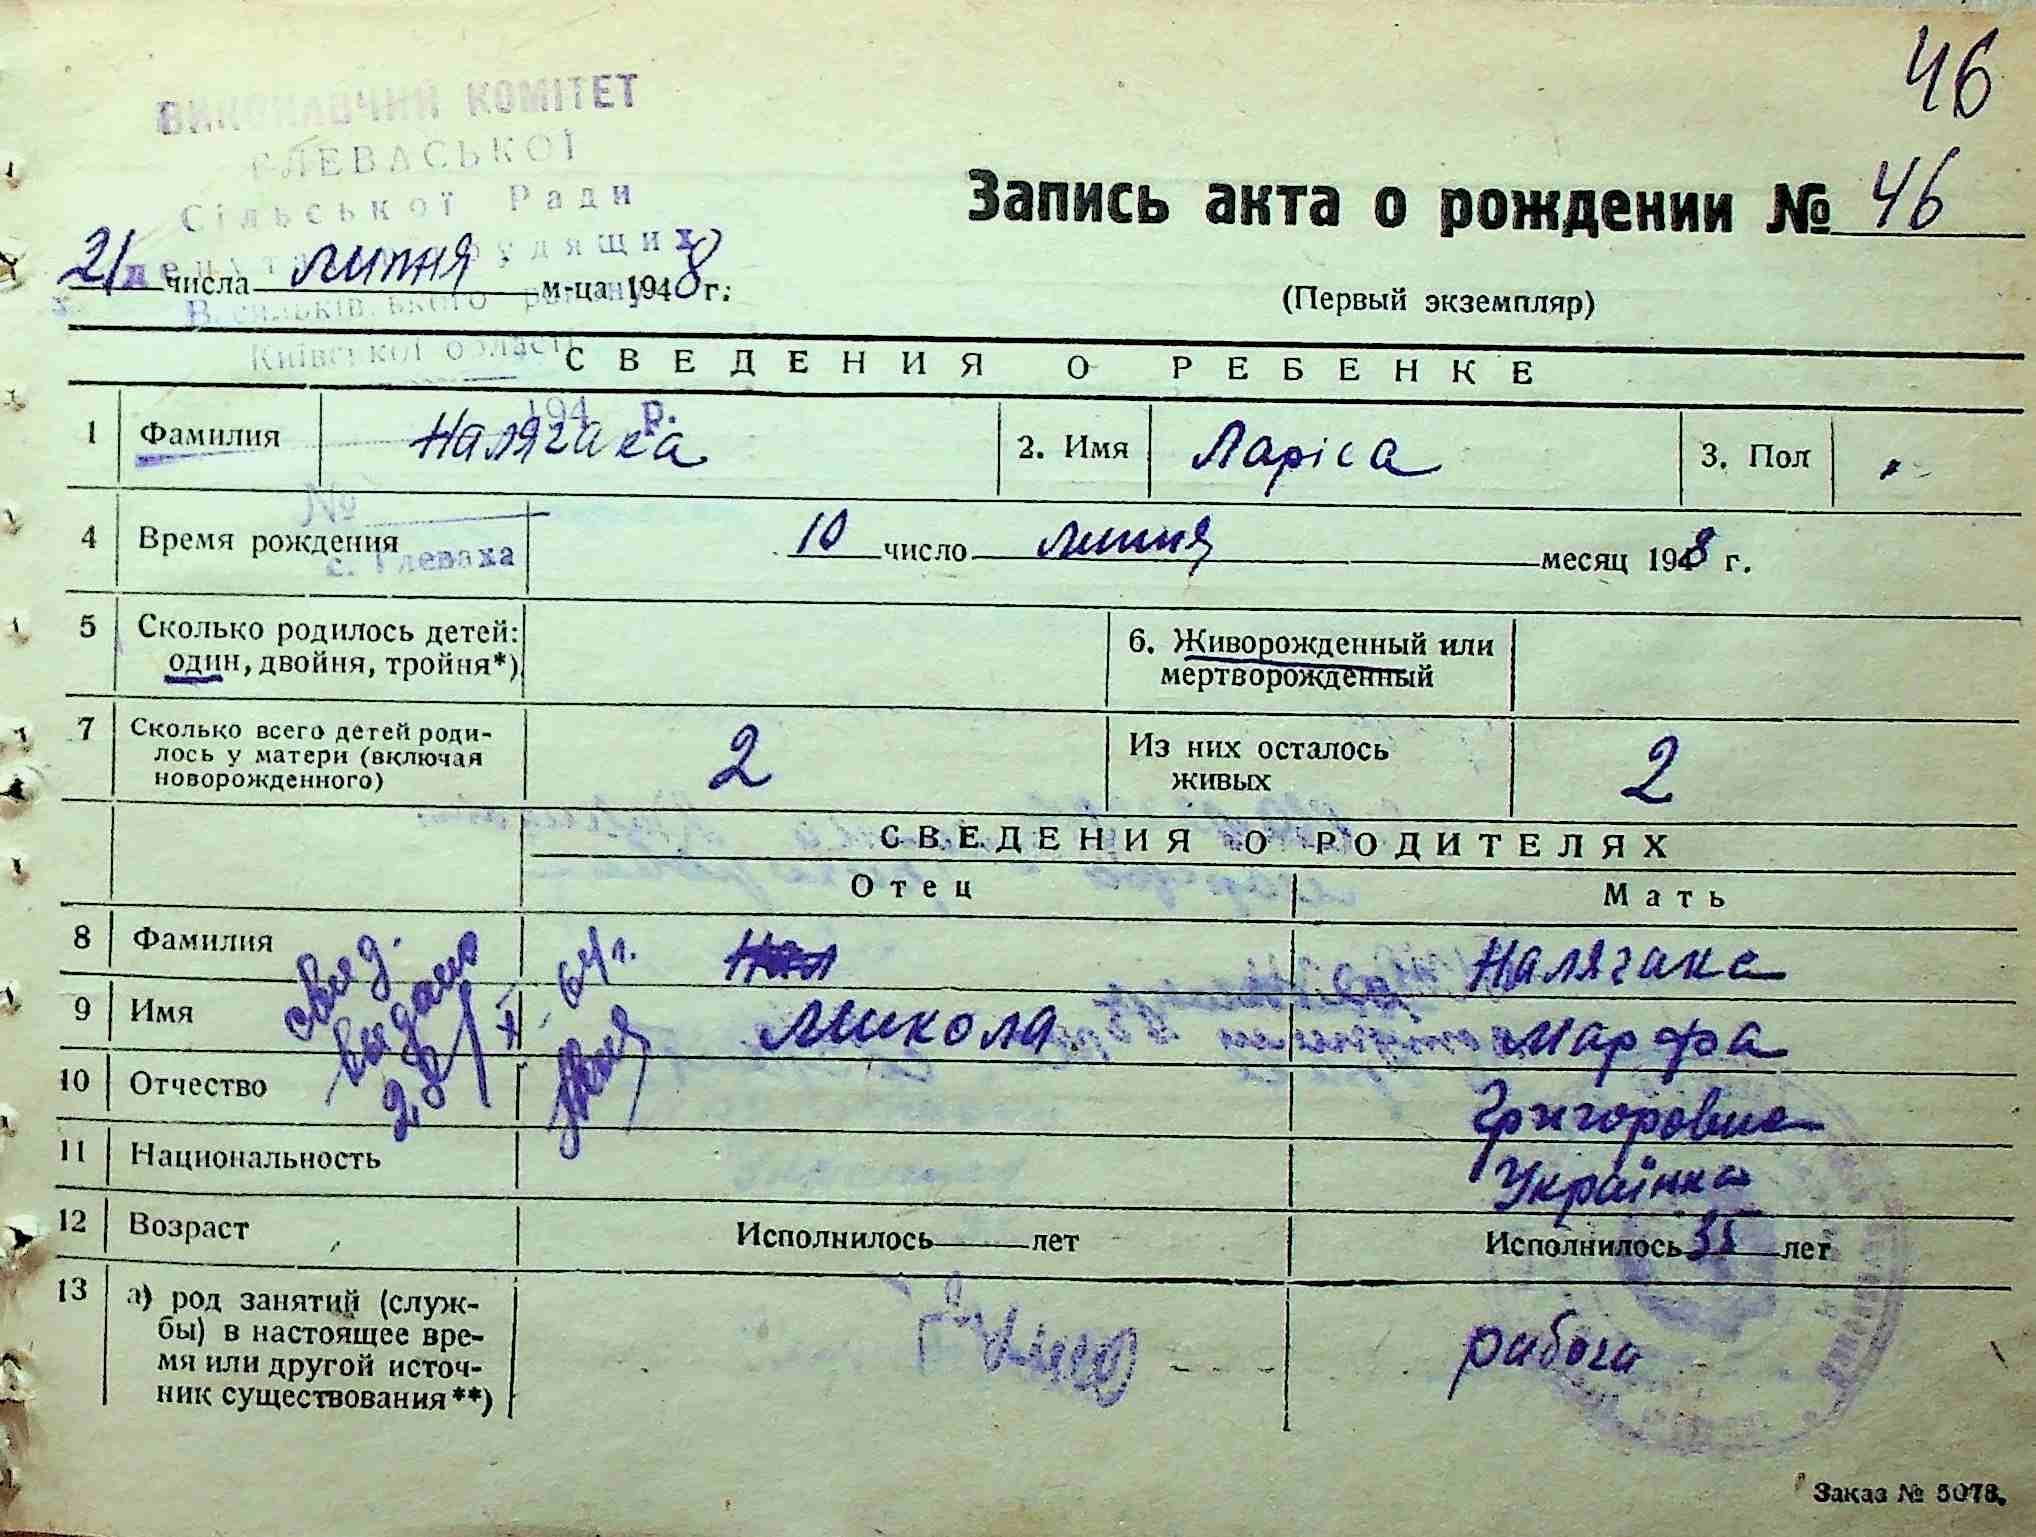 46
ВИКОНАВЧИЙ КОМІТЕТ
ГЛЕВАСЬКОЇ
Сільської Ради
депутатів трудящих
Васильківського району
Київської області
194 р.
№
с. Глеваха
Запись акта о рождении № 46
21 числа липня м-ца 1948 г.
(Первый экземпляр)
СВЕДЕНИЯ О РЕБЕНКЕ
1 Фамилия Налягака 2. Имя Ларіса 3. Пол
4 Время рождения 10 число липня месяц 1948 г.
5 Сколько родилось детей:
один, двойня, тройня*)
6. Живорожденный или
мертворожденный
7 Сколько всего детей роди-
лось у матери (включая
новорожденного)
2
Из них осталось
живых
2
СВЕДЕНИЯ О РОДИТЕЛЯХ
Отец Мать
8 Фамилия Нал Налягака
9 Имя Микола Марфа
10 Отчество Григоровна
11 Национальность Українка
12 Возраст Исполнилось лет Исполнилось 35 лет
13 а) род занятий (служ-
бы) в настоящее вре-
мя или другой источ-
ник существования**)
работа
свид.
выдано
64 г.
Заказ № 5078.